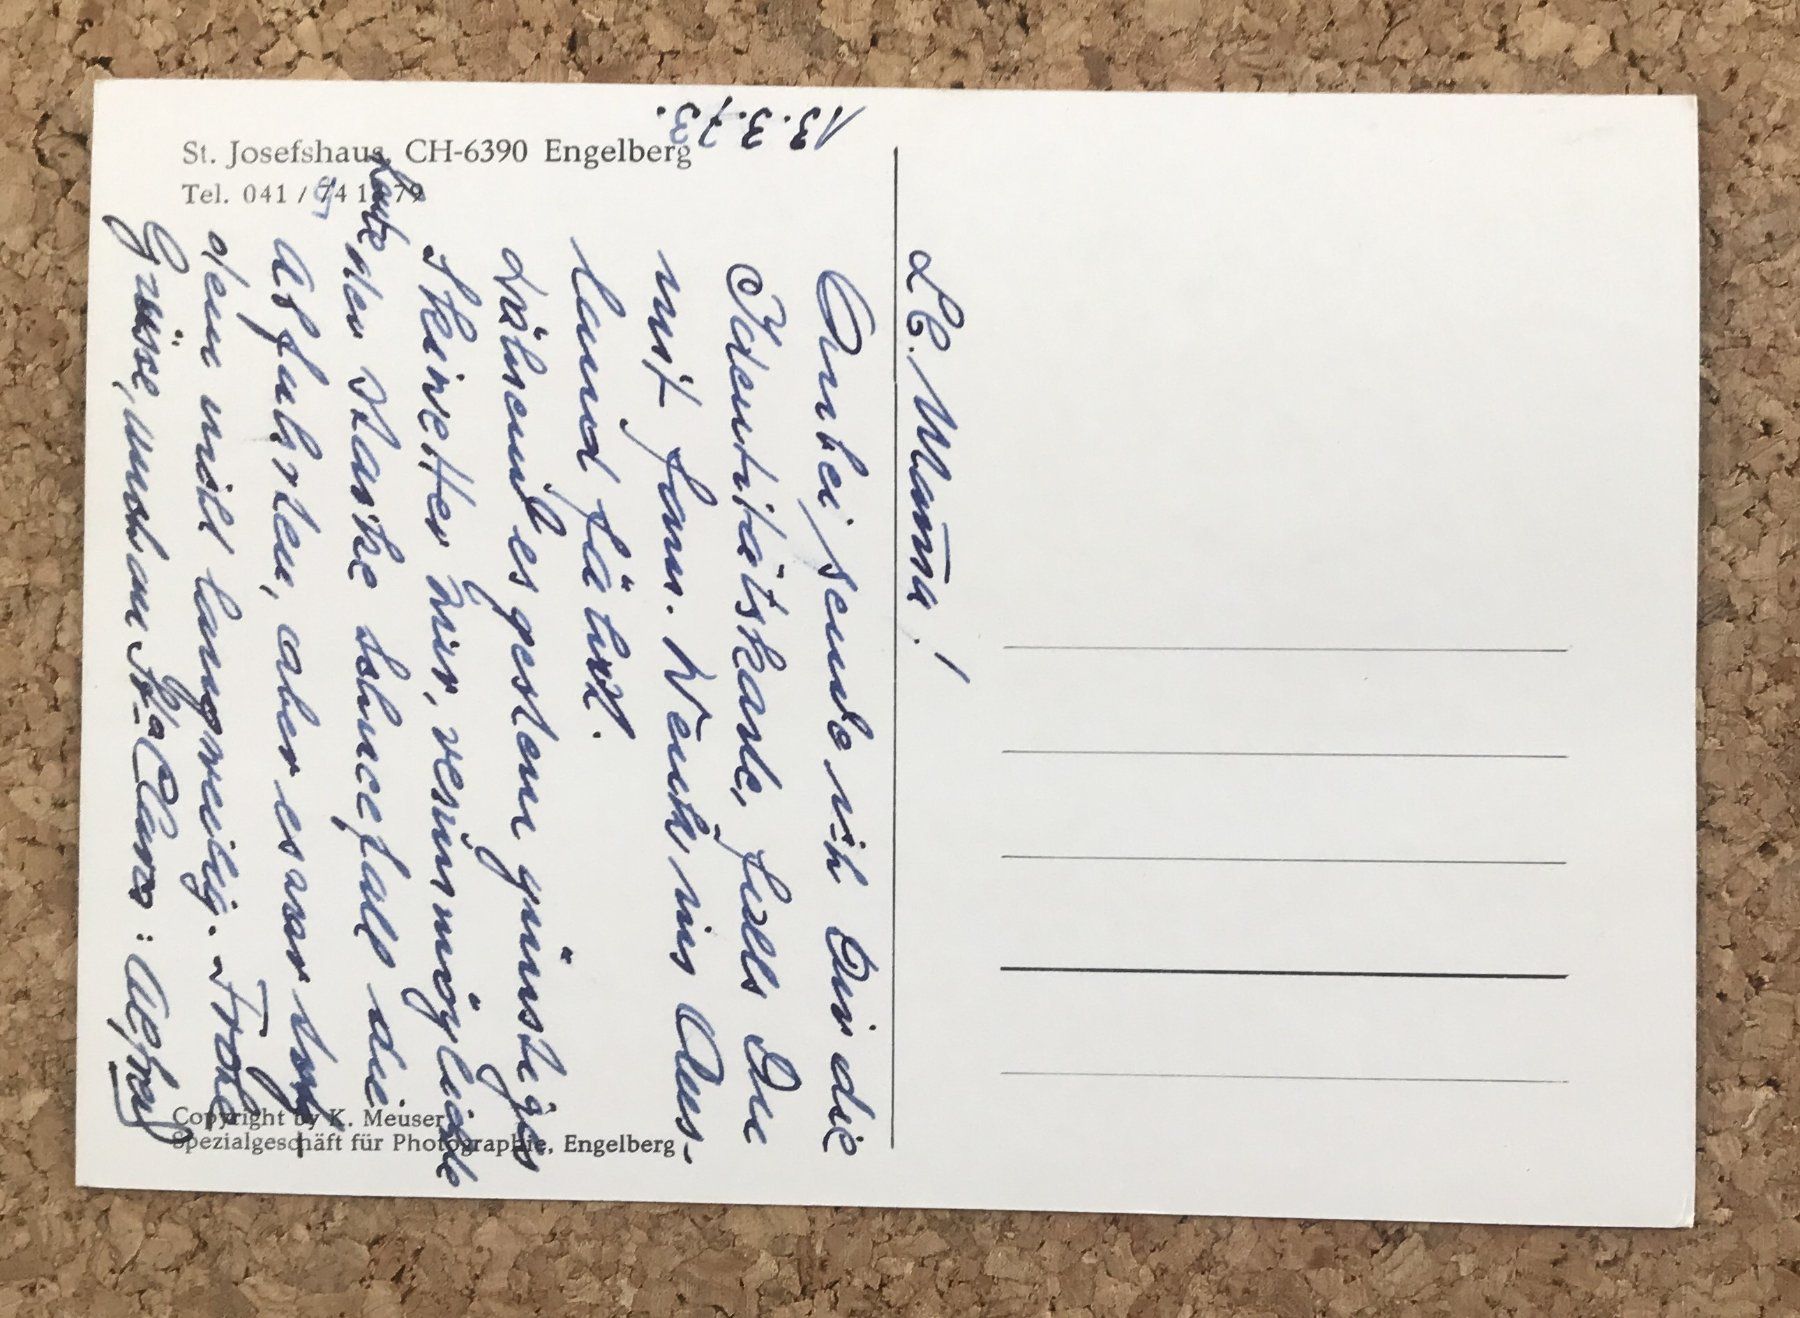 St. Josefshaus, CH-6390 Engelberg
Tel. 041 / 74 1 79
13.3.73.
Lb. Mama!
Anbei sende ich Dir die
Identitätskarte, falls Du
mit fam. Wenk ins Aus-
land fährst.
Während es gestern günstiges
Skiwetter hier, verunmöglichte
heute der starke Schneefall die
Abfahrten, aber es war
den nicht langweilig. Frohe
Grüsse, auch an Frl. Clara: Alfred
Copyright by K. Meuser
Spezialgeschäft für Photographie, Engelberg